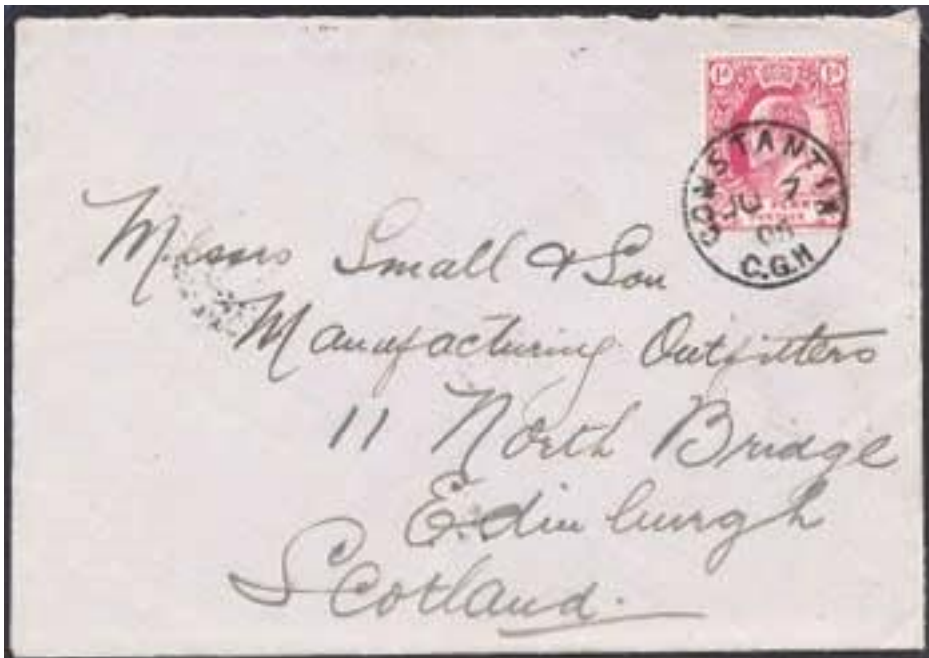 1d 1d
CONSTANTIA
JU 7
C.G.H
Messrs Small & Son
Manufacturing Outfitters
11 North Bridge
Edinburgh
Scotland.